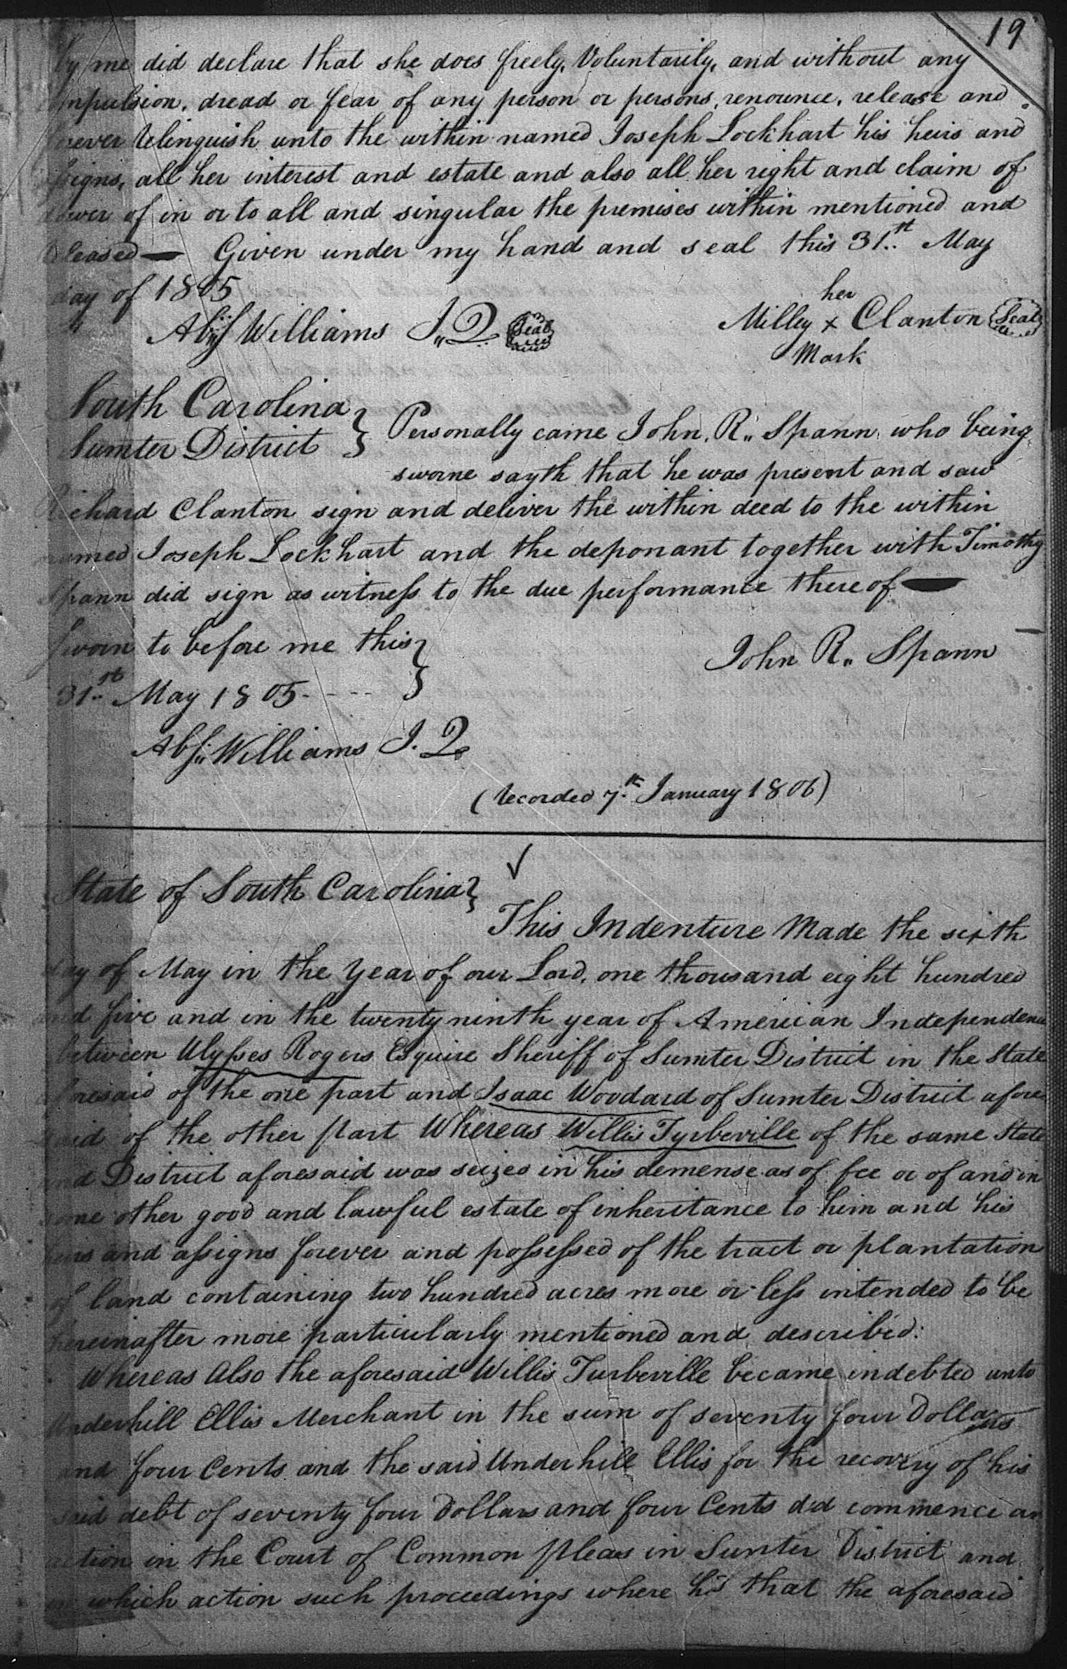 19
by me did declare that she does freely, Voluntarily, and without any
compulsion, dread or fear of any person or persons, renounce, release and
forever relinquish unto the within named Joseph Lockhart his heirs and
assigns, all her interest and estate and also all her right and claim of
dower of in or to all and singular the premises within mentioned and
released — Given under my hand and seal this 31st May
day of 1805
her
Williams J.Q Seal Milley x Clanton Seal
Mark
South Carolina
Sumter District } Personally came John. R. Spann who being
sworne sayth that he was present and saw
Richard Clanton sign and deliver the within deed to the within
named Joseph Lockhart and the deponant together with Timothy
Spann did sign as witness to the due performance thereof —
Sworn to before me this }
31st May 1805 John R. Spann
Williams J. Q
(recorded 7th January 1806)
State of South Carolina }
This Indenture Made the sixth
day of May in the Year of our Lord, one thousand eight hundred
and five and in the twenty ninth year of American Independence
between Ulysses Rogers Esquire Sheriff of Sumter District in the State
aforesaid of the one part and Isaac Woodard of Sumter District afore
said of the other part Whereas Willis Tyrbeville of the same State
and District aforesaid was seizes in his demense as of fee or of and in
some other good and lawful estate of inheritance to him and his
heirs and assigns forever and possessed of the tract or plantation
of land containing two hundred acres more or less intended to be
hereinafter more particularly mentioned and described:
Whereas Also the aforesaid Willis Turbeville became indebted unto
Underhill Ellis Merchant in the sum of seventy four Dollars
and four Cents and the said Underhill Ellis for the recovery of his
said debt of seventy four Dollars and four Cents did commence an
action in the Court of Common pleas in Sumter District and
in which action such proceedings where that the aforesaid